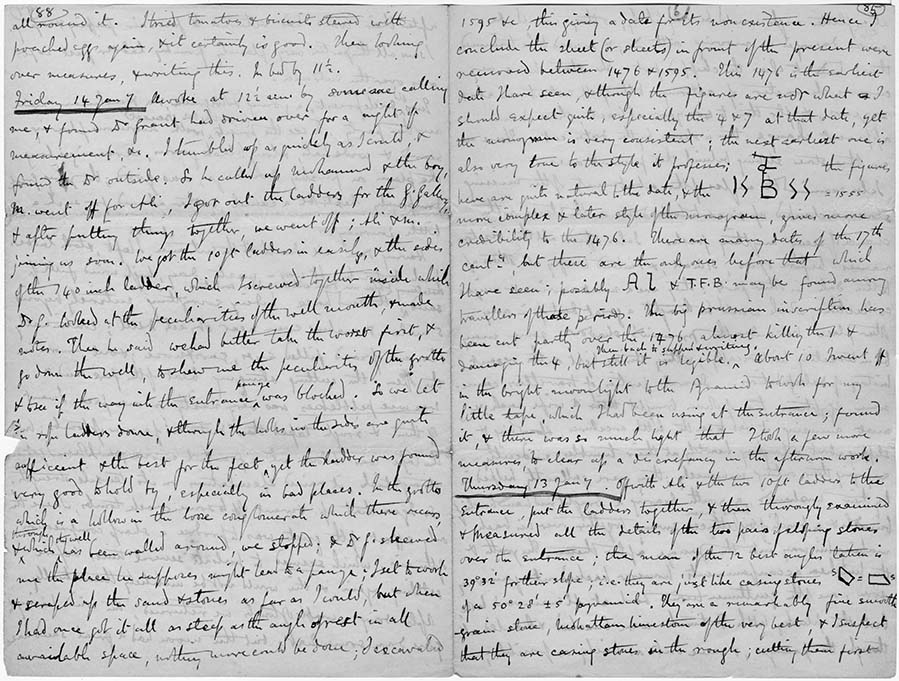 (88)
all round it. Stored tomatoes & biscuits stewed with
poached eggs again, & it certainly is good. Then looking
over measures, & writing this. In bed by 11½.
Friday 14 Jany Awoke at 12½ even by someone calling
me, & found Dr Grant had driven over for a night of
measurement, &c. I tumbled up as quickly as I could, &
found the Dr outside. So he called up Mohammed & the boy,
M. went off for Ali, I got out the ladders for the G. Gallery,
& after putting things together, we went off; Ali & M.
joining us soon. We got the 10 ft ladders in easily, & the sides
of the 40 inch ladder, which I screwed together inside while
Dr G. looked at the peculiarities of the well mouth, & made
notes. Then he said we had better take the worst first, &
go down the well, to shew me the peculiarities of the grotto
& to see if the way into the Entrance passage was blocked. So we let
in rope ladders down, & though the holes in the sides are quite
sufficient & the best for the feet, yet the ladder was found
very good to hold by, especially in bad places. In the grotto
which is a hollow in the loose conglomerate which there occurs,
through the well
& which has been walled around, we stopped: & Dr G. shewed
me the place he supposes might lead to a passage; I set to work
& scraped up the sand & stones as far as I could, but when
I had once got it all as steep as the angle of rest in all
available space, nothing more could be done; I excavated
(85)
1595 &c thus giving a date for its nonexistence. Hence I
conclude the sheet (or sheets) in front of the present were
removed between 1476 & 1595. This 1476 is the earliest
date I have seen, & though the figures are not what I
should expect quite, especially the 4 & 7 at that date, yet
the monogram is very consistent; the next earliest one is
also very true to the style it professes; the figures
here are quite natural to the date, & the IS B SS = 1555
more complex & later style of the monogram, gives more
credibility to the 1476. There are many dates of the 17th
centy, but these are the only ones before that which
I have seen; possibly & T.F.B. may be found among
travellers of these periods. The big prussian inscription has
been cut partly over the 1476, almost killing the 1 &
damaging the 4, but still it is legible. Then back to supper & writing, About 10 I went off
in the bright moonlight to the Pyramid to look for my
little tape, which I had been using at the entrance; found
it, & there was so much light that I took a few more
measures, to clear up a discrepancy in the afternoon work.
Thursday 13 Jany Off with Ali & the two 10 ft ladders to the
Entrance put the ladders together, & then thoroughly examined
& measured all the details of the two pairs of sloping stones
over the entrance; the mean of the 12 best angles taken is
39° 32' for their slope, i.e. they are just like casing stones
of a 50° 28' ± 5' pyramid. They are a remarkably fine smooth
grain stone, Mokattam limestone of the very best, & I suspect
that they are casing stones in the rough; cutting them first